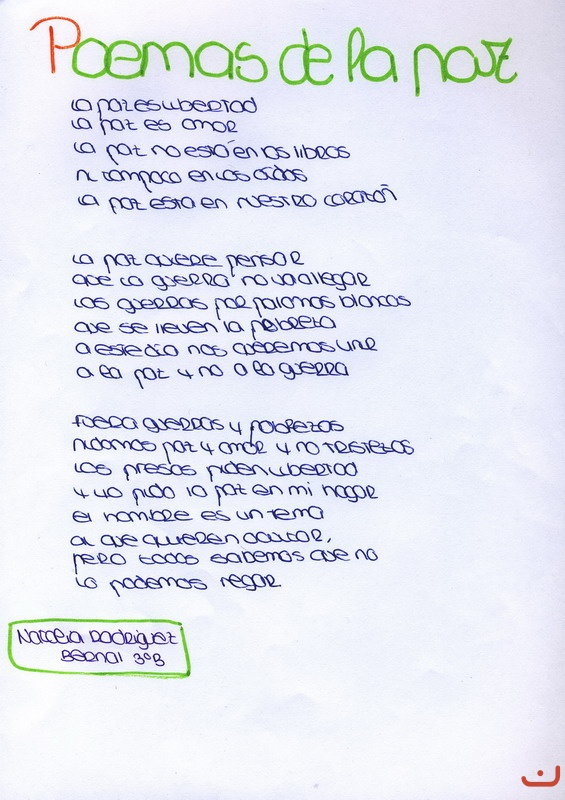 Poemas de la paz
La paz es libertad
La paz es amor
La paz no está en los libros
ni tampoco en los oídos
La paz esta en nuestro corazón
La paz quiere pensar
que la guerra no va a llegar
Los guerras por palomas blancas
que se lleven la pobreza
a este día nos queremos unir
a la paz y no a la guerra
fuera guerras y pobrezas
pidamos paz y amor y no tristezas
Los presos piden libertad
y yo pido la paz en mi hogar
el hambre es un tema
al que quieren ocultar,
pero todos sabemos que no
lo podemos negar
Rodríguez
Bernal 3ºB